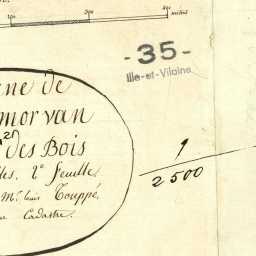 200 300 400 mètres
- 35 -
Ille-et-Vilaine
ne de
mor van
des Bois
les. 2e feuille
Mr. Louis Touppé,
Cadastre.
1
2500